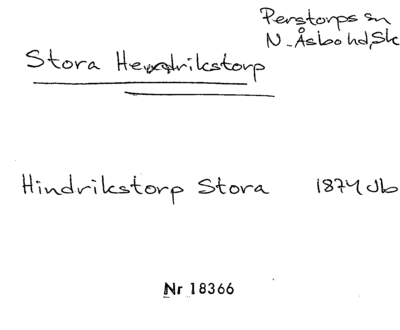 Perstorps sn
N. Åsbo hd, Sk
Stora Hendrikstorp
Hindrikstorp Stora 1874 Jb
Nr 18366